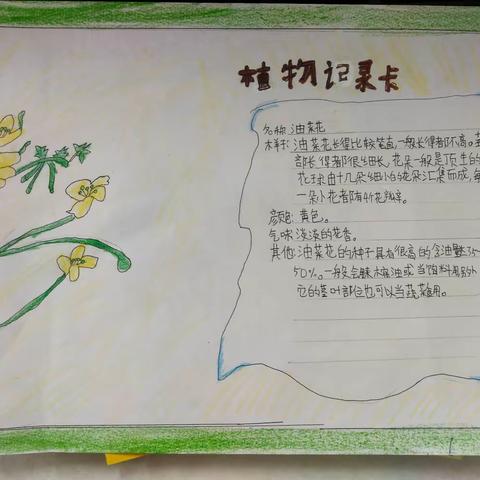 植物记录卡
名称:油菜花
样子:油菜花长得比较笔直,一般长得都不高。茎
部长得都很细长,花朵一般是顶生的
花球由十几朵细小的花朵汇集而成,每
一朵小花都有4片花瓣。
颜色:黄色。
气味:淡淡的花香。
其他:油菜花的种子具有很高的含油量
50%。一般会 油或当饲料用
它的茎叶部位也可以当蔬菜食用。